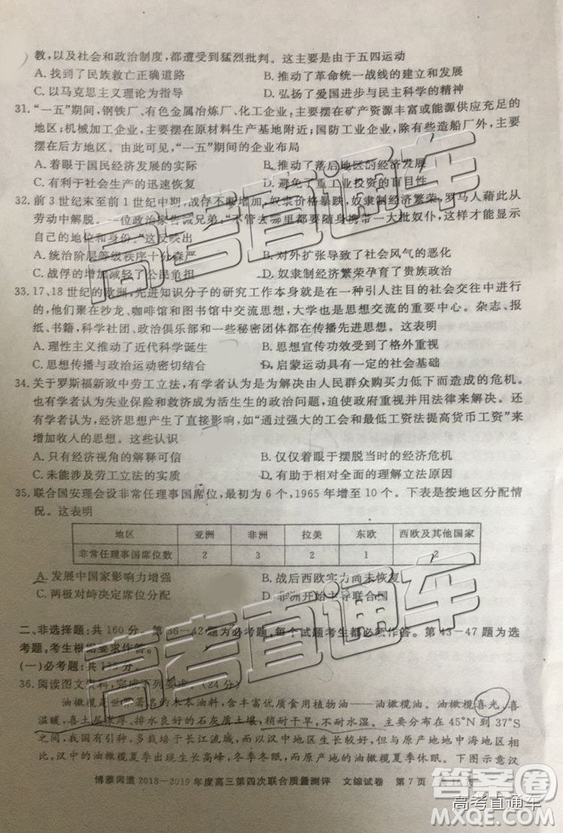 教,以及社会和政治制度,都遭受到猛烈批判。这主要是由于五四运动
A. 找到了民族救亡正确道路 B. 推动了革命统一战线的建立和发展
C. 以马克思主义理论为指导 D. 弘扬了爱国进步与民主科学的精神
31. “一五”期间,钢铁厂、有色金属冶炼厂、化工企业,主要摆在矿产资源丰富或能源供应充足的
地区;机械加工企业,主要摆在原材料生产基地附近;国防工业企业,除有些造船厂外,主要
摆在后方地区。由此可见,“一五”期间的企业布局
A. 着眼于国民经济发展的实际 B. 推动了落后地区的经济发展
C. 有利于社会生产的迅速恢复 D. 避免了重工业投资的盲目性
32. 前3世纪末至前1世纪中期,战俘不断增多,奴隶价格暴跌,奴隶制经济繁荣,罗马人藉此从
劳动中解脱。一位政治家告诫兄弟:“你去哪里都要随身带一大批奴仆,这样才能显示
自己的地位和身份。”这表明
A. 统治阶层等级森严 B. 对外扩张导致了社会风气的恶化
C. 战俘的增加减轻了公民负担 D. 奴隶制经济繁荣孕育了贵族政治
33. 17、18世纪的欧洲,先进知识分子的研究工作本身就是在一种引人注目的社会交往中进行
的,他们聚在沙龙、咖啡馆和图书馆中交流思想,大学也是思想交流的重要中心。杂志、报
纸、科学社团、政治俱乐部和一些秘密团体使得思想交流变得格外重要。这表明
A. 理性主义推动了近代科学诞生 B. 思想发展的重要性
C. 思想传播与政治运动密切结合 D. 启蒙运动具有一定的社会基础
34. 关于罗斯福新政中劳工立法,有学者认为是为解决由人民群众购买力低下而造成的危机。
也有学者认为失业保险和救济成为活生生的政治要求,迫使政府重视并用法律来解决。还
有学者认为,经济思想产生了直接影响,如“通过强大的工会和最低工资法提高货币工资”来
增加收入的思想。这些认识
A. 只有经济史视角的解释可信 B. 仅仅着眼于摆脱当时的经济危机
C. 未能涉及劳工立法的实质 D. 有助于相对严谨的历史解释
35. 联合国安理会设非常任理事国席位,最初为6个,1965年增至10个。下表是按地区分配情
况。这表明
地区 亚洲 非洲 拉美 东欧 西欧及其他国家
非常任理事国席位数 2 3 2 1 2
A. 发展中国家影响力增强 B. 战后西欧实力尚未恢复
C. 两极对峙决定席位分配 D. 非洲开始主导联合国
二、非选择题:共160分。第36—42题为必考题,每个试题考生都必须作答。第43—47题为选
考题,考生根据要求作答。
(一)必考题:共135分。
36. 阅读图文资料,完成下列要求。(24分)
油橄榄是世界著名的木本油料,含丰富优质食用植物油——油橄榄油。油橄榄喜光,喜
温暖,喜土层深厚、排水良好的石灰质土壤,稍耐干旱,不耐水湿。主要分布在45°N到37°S
之间,我国有引种,多地试种不成功,但在陕西汉中等地获得成功。与地中海地区相比,汉
中的油橄榄生长略高,冬季冬眠,而夏季油橄榄仍然
博雅闻道2018—2019年度高三第四次联合质量测评 文综试卷 第7页
高考直通车
高考直通车
答案圈
MXQE.COM
高考直通车